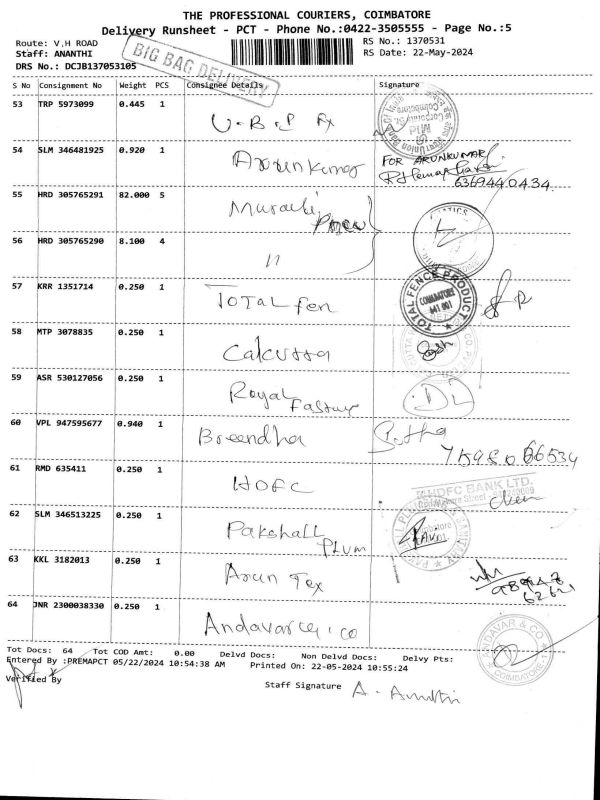 THE PROFESSIONAL COURIERS, COIMBATORE
Delivery Runsheet - PCT - Phone No.:0422-3505555 - Page No.:5
Route: V.H ROAD
RS No.: 1370531
Staff: ANANTHI
RS Date: 22-May-2024
DRS No.: DCJB137053105
BIG BAG DELIVERY
S No Consignment No Weight PCS Consignee Details Signature
53 TRP 5973099 0.445 1
54 SLM 346481925 0.920 1 Arunkumar FOR ARUNKUMAR
6369440434
55 HRD 305765291 82.000 5
56 HRD 305765290 8.100 4 11
57 KRR 1351714 0.250 1 TOTAL fen TOTAL FENCE PRODUCT COIMBATORE 641 001
58 MTP 3078835 0.250 1 Calcutta
59 ASR 530127056 0.250 1 Royal
60 VPL 947595677 0.940 1 Breendha
61 RMD 635411 0.250 1 HDFC HDFC BANK LTD.
62 SLM 346513225 0.250 1 Pakshall PLUM
63 KKL 3182013 0.250 1 Arun Tex
64 JNR 2300038330 0.250 1 Andavar & co ANDAVAR & CO COIMBATORE
Tot Docs: 64 Tot COD Amt: 0.00 Delvd Docs: Non Delvd Docs: Delvy Pts:
Entered By :PREMAPCT 05/22/2024 10:54:38 AM Printed On: 22-05-2024 10:55:24
Verified By
Staff Signature